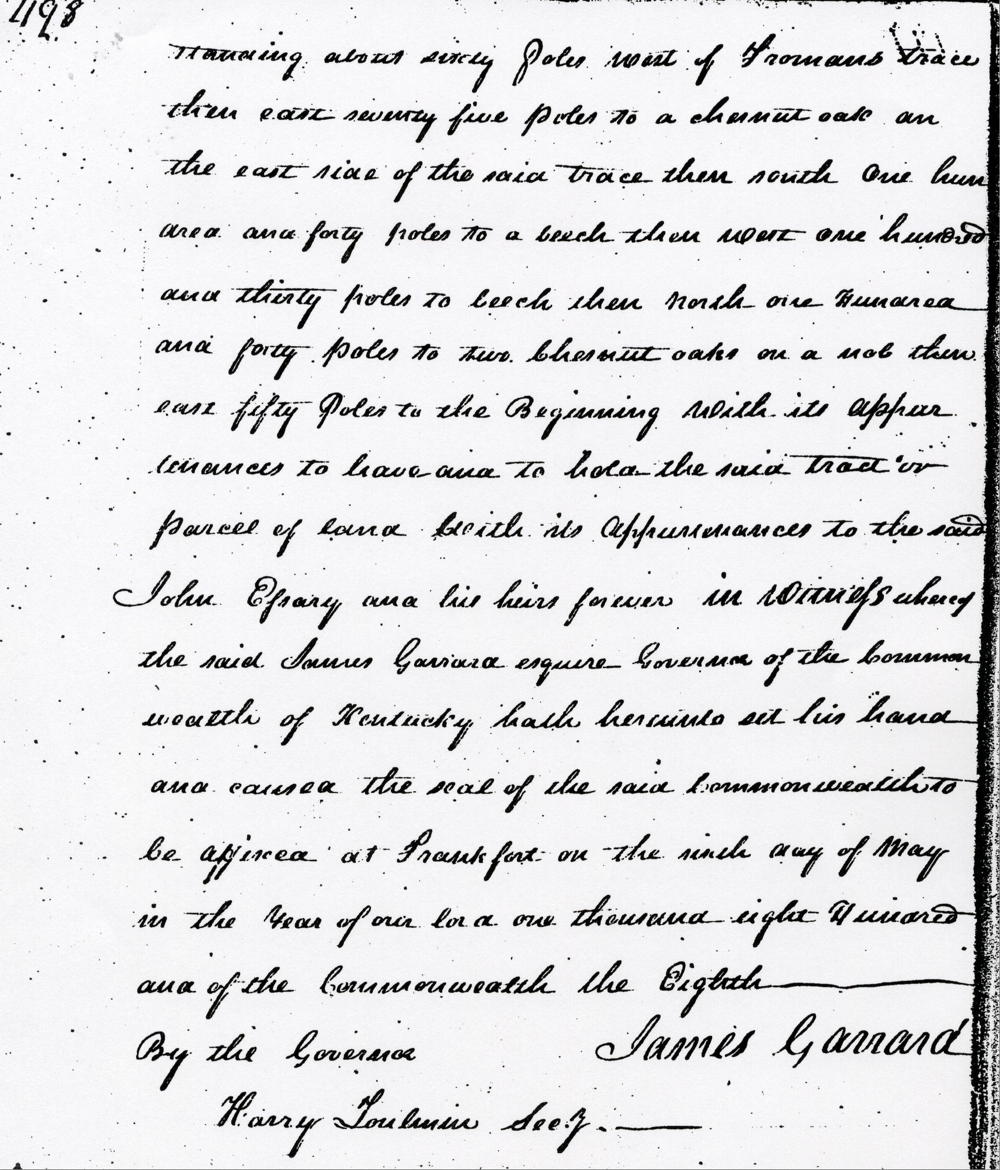 498
standing about sixty Poles west of Fromans trace
then east seventy five poles to a chesnut oak an
the east side of the said trace then south One hun
dred and forty poles to a beech then west one hundred
and thirty poles to beech then North one Hundred
and forty Poles to two Chesnut oaks on a nob then
east fifty Poles to the Beginning With its appur
tenances to have and to hold the said tract or
parcel of land With its Appurtenances to the said
John Essary and his heirs forever in Witness whereof
the said James Garrard esquire Governor of the Common
wealth of Kentucky hath hereunto set his hand
and caused the seal of the said Commonwealth to
be affixed at Frankfort on the sixth day of May
in the Year of our lord one thousand eight Hundred
and of the Commonwealth the Eighth
James Garrard
By the Governor
Harry Toulmin Secy.